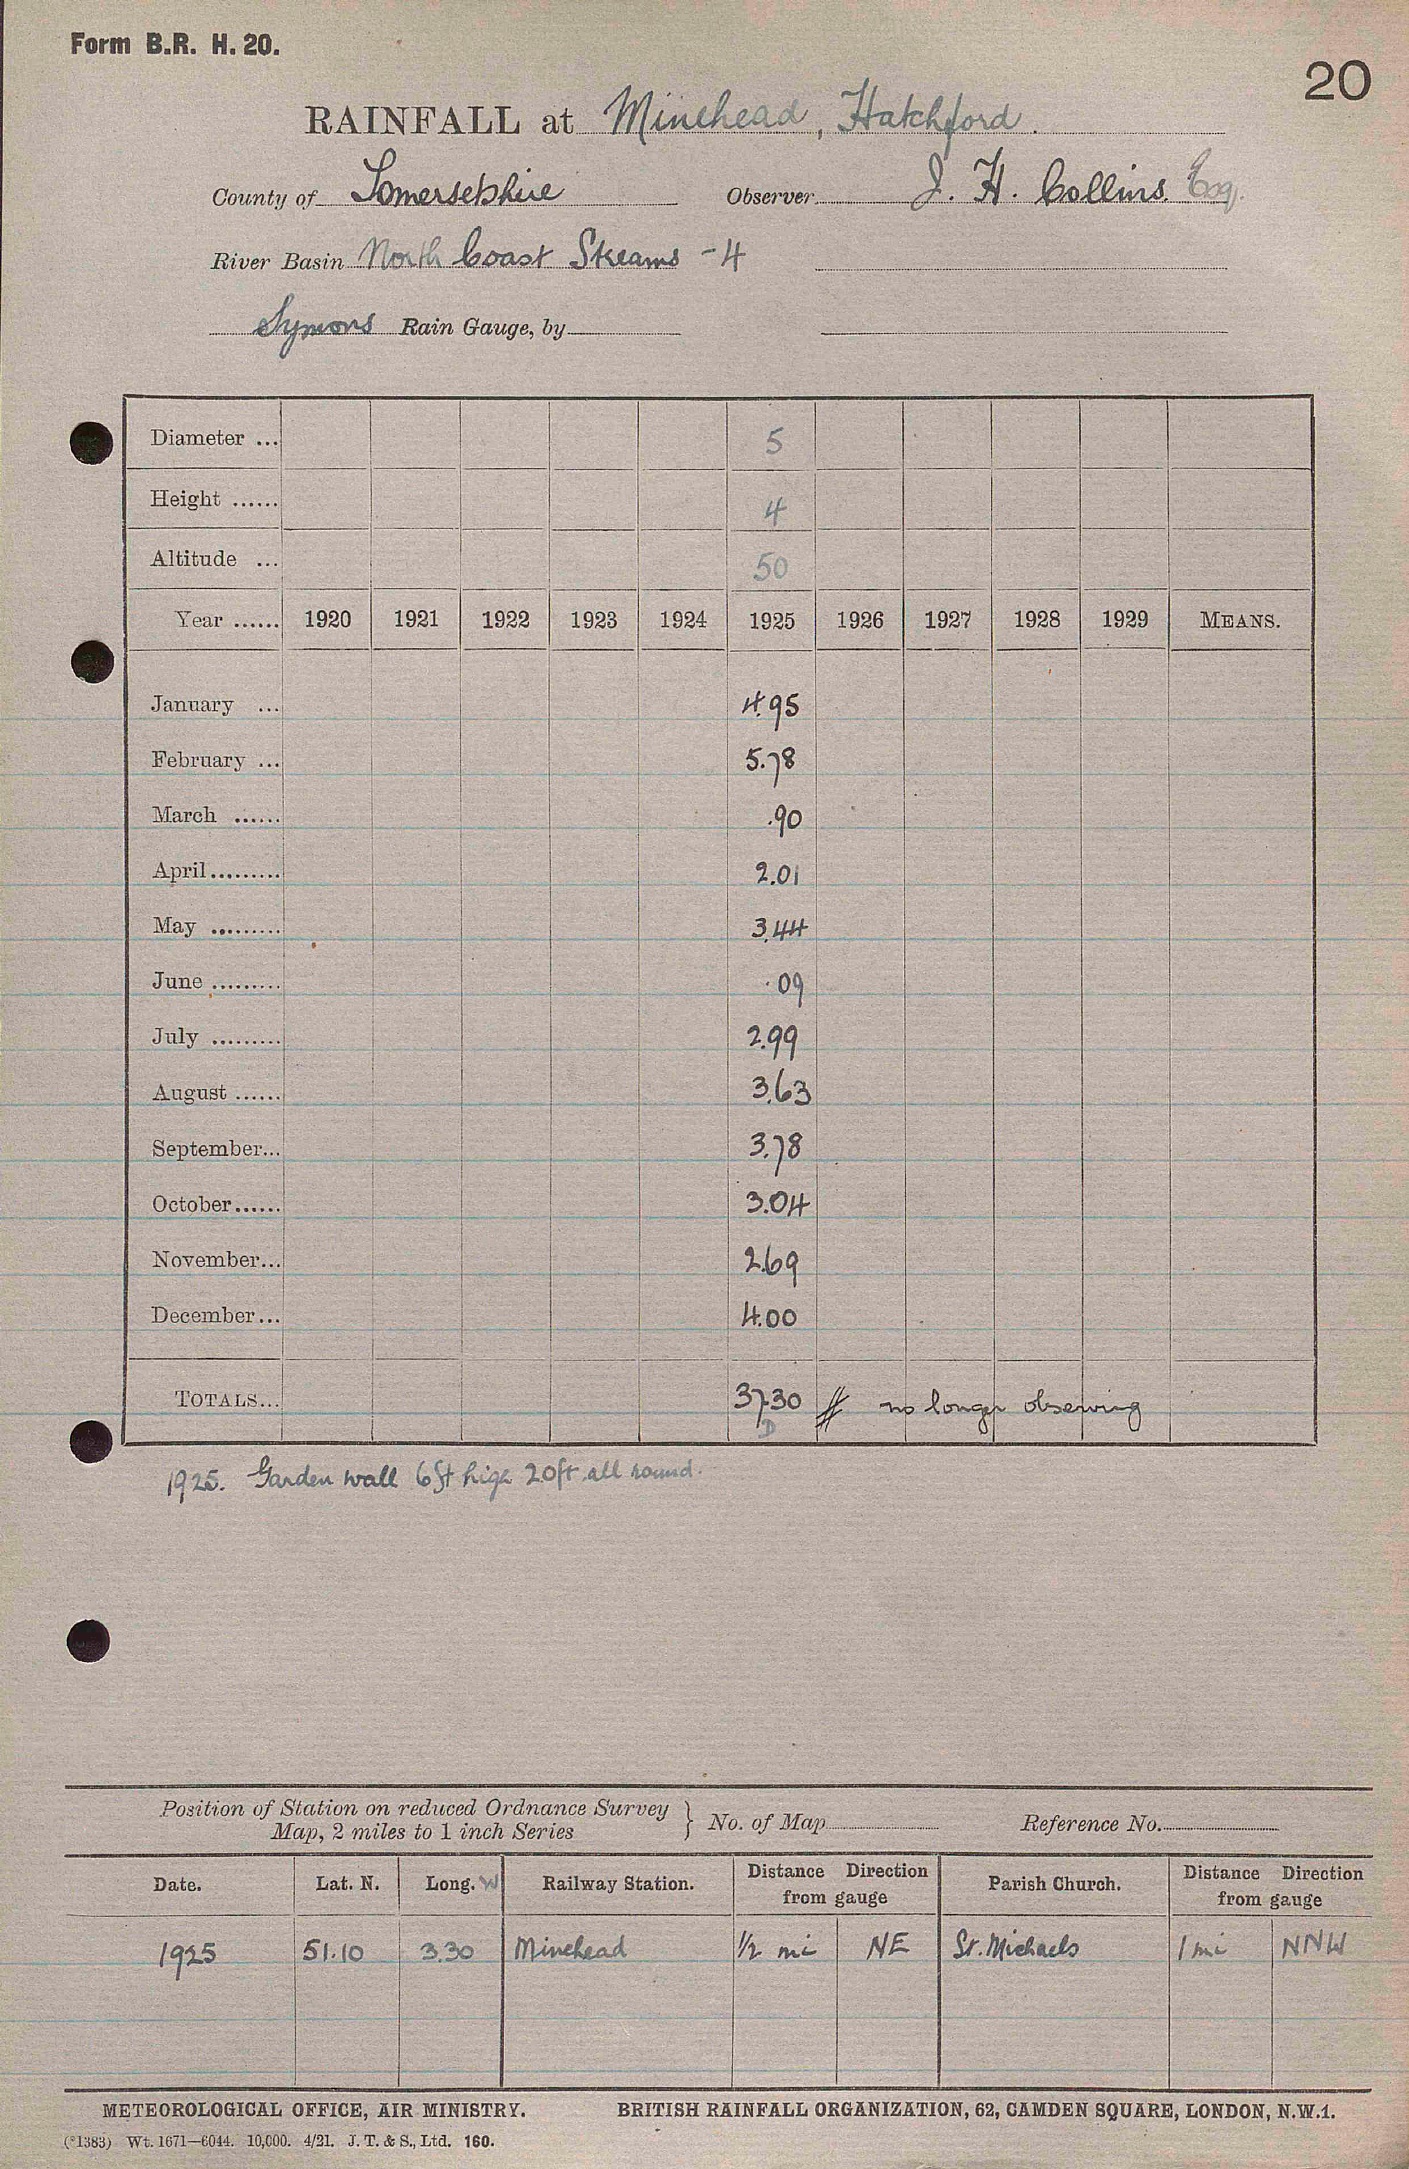 Form B.R. H. 20.
20
RAINFALL at Minehead, Hatchford.
County of Somersetshire Observer J. H. Collins. Esq.
River Basin North Coast Streams - 4
Symons Rain Gauge, by
Diameter ... 5
Height ...... 4
Altitude ... 50
Year ...... 1920 1921 1922 1923 1924 1925 1926 1927 1928 1929 MEANS.
January ... 4.95
February ... 5.78
March ...... .90
April......... 2.01
May ......... 3.44
June ......... .09
July ......... 2.99
August ...... 3.63
September... 3.78
October...... 3.04
November... 2.69
December... 4.00
TOTALS... 37.30 // no longer observing
D
1925. Garden wall 6ft high 20ft all round.
Position of Station on reduced Ordnance Survey } No. of Map Reference No.
Map, 2 miles to 1 inch Series
Date. Lat. N. Long. W Railway Station. Distance Direction from gauge Parish Church. Distance Direction from gauge
1925 51.10 3.30 Minehead 1/2 mi NE St. Michaels 1 mi NNW
METEOROLOGICAL OFFICE, AIR MINISTRY. BRITISH RAINFALL ORGANIZATION, 62, CAMDEN SQUARE, LONDON, N.W.1.
(*1383) Wt. 1671—6044. 10,000. 4/21. J. T. & S., Ltd. 160.